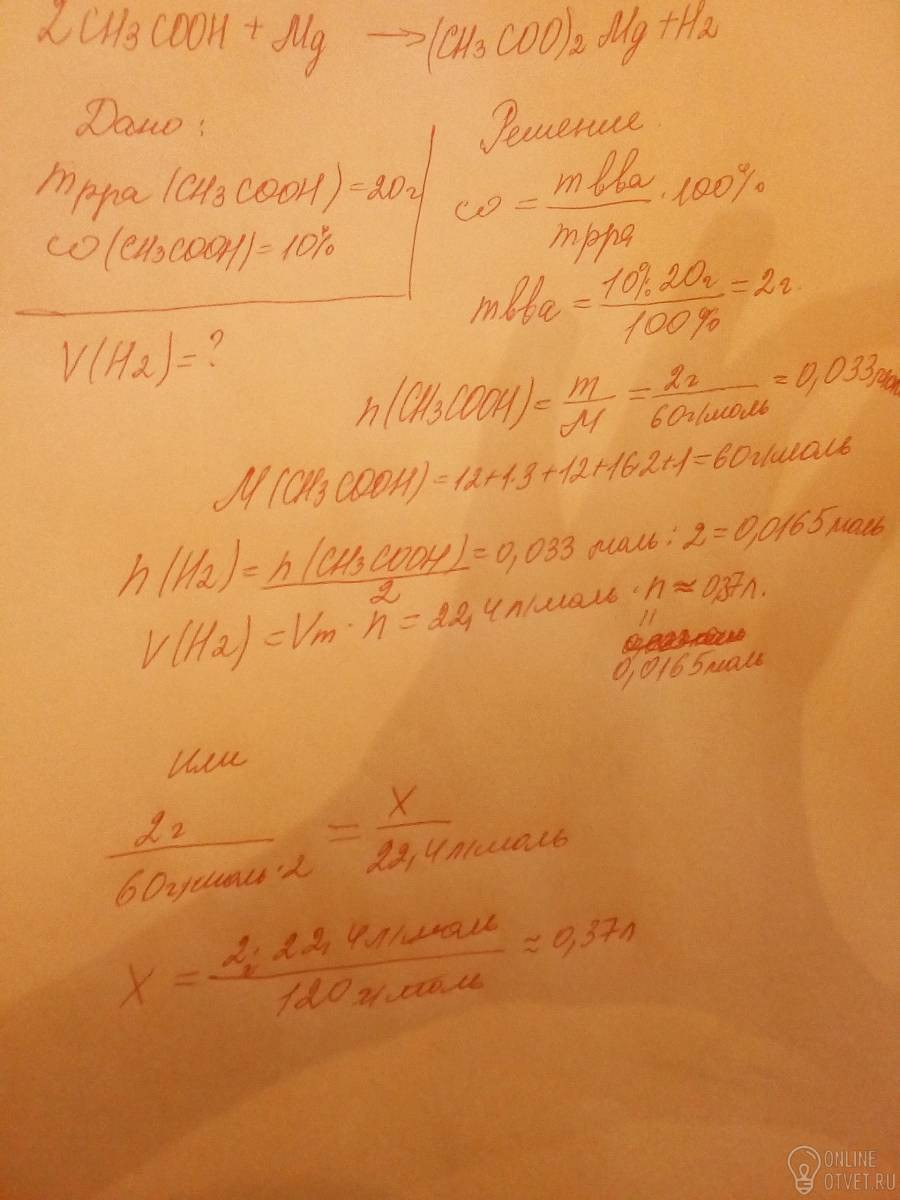 2CH3COOH + Mg → (CH3COO)2Mg + H2
Дано:
mрра (CH3COOH) = 20г
ω (CH3COOH) = 10%
V(H2) = ?
Решение.
ω = mвва / mрра · 100%
mвва = 10% · 20г / 100% = 2г.
n(CH3COOH) = m / M = 2г / 60г/моль = 0,033моль
M(CH3COOH) = 12+1·3+12+16·2+1 = 60г/моль
n(H2) = n(CH3COOH) / 2 = 0,033 моль : 2 = 0,0165 моль
V(H2) = Vm · n = 22,4л/моль · n ≈ 0,37л.
"
0,0165моль
или
2г / 60г/моль·2 = X / 22,4л/моль
X = 2г · 22,4л/моль / 120г/моль ≈ 0,37л
ONLINE
OTVET.RU